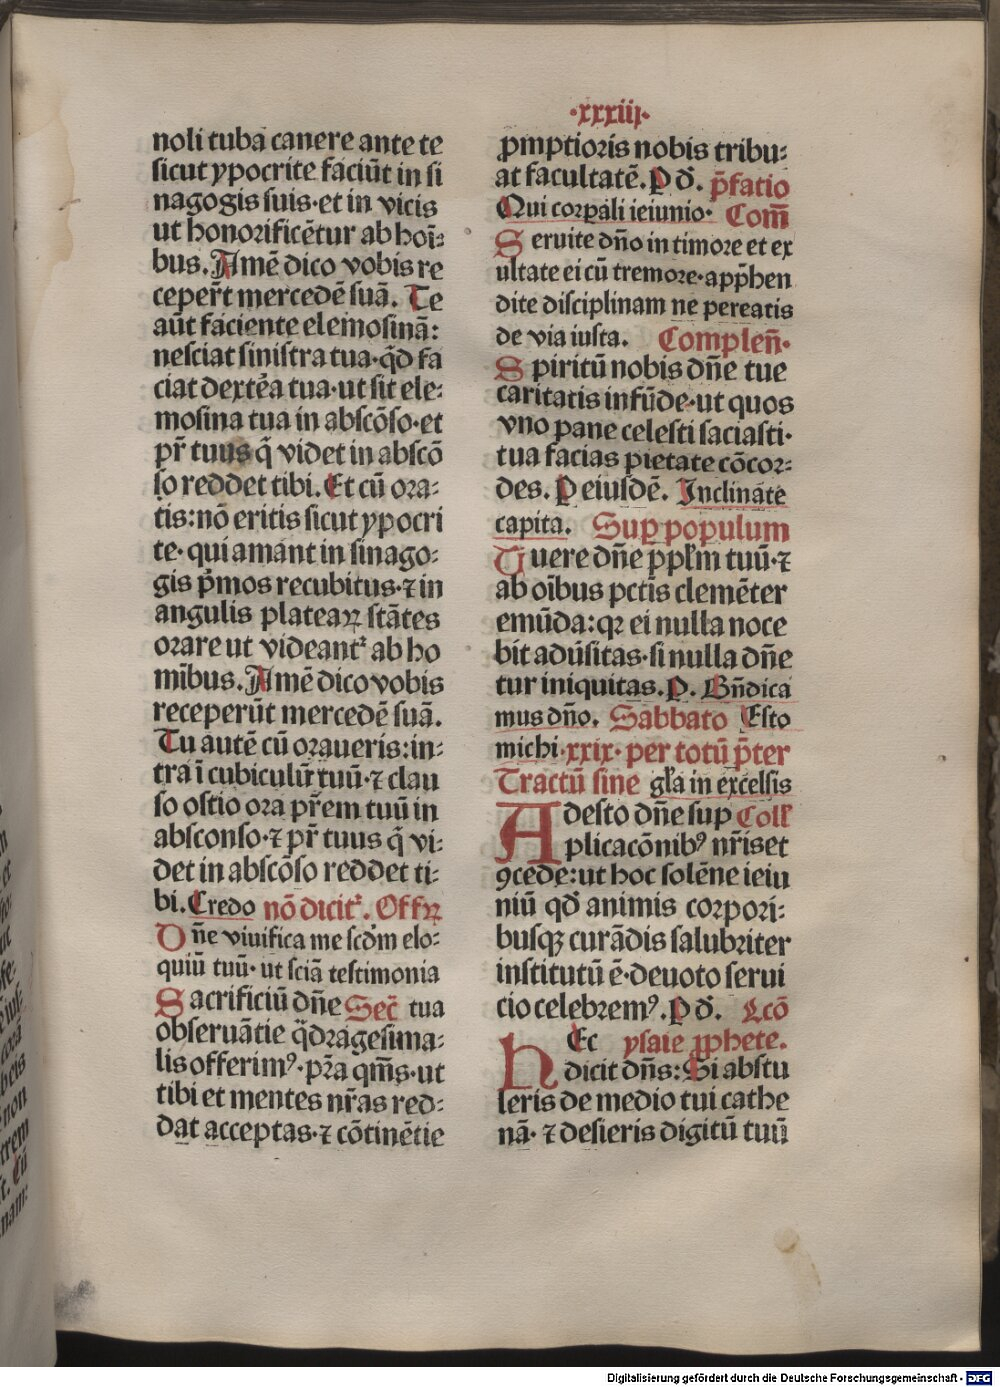 ·xxxiij·
noli tuba canere ante te
sicut ypocrite faciūt in si
nagogis suis·et in vicis
ut honorificētur ab hoī:
bus. Amē dico vobis re
ceper̄t mercedē suā. Te
aūt faciente elemosinā:
nesciat sinistra tua·qd̄ fa
ciat dextēa tua·ut sit ele:
mosina tua in abscōso·et
pr̄ tuus q̄ videt in abscō
so reddet tibi. Et cū ora:
tis: nō eritis sicut ypocri
te· qui amant in sinago:
gis p̄mos recubitus·⁊ in
angulis plateaꝝ stātes
orare ut videantᷣ ab ho
mībus. Amē dico vobis
receperūt mercedē suā.
Tu autē cū oraueris: in:
tra ī cubiculūr tuū·⁊ clau
so ostio ora pr̄em tuū in
absconso·⁊ pr̄ tuus q̄ vi:
det in abscōso reddet ti:
bi. Credo nō dicitᷣ. Offꝝ
Dn̄e viuifica me scd̄m elo:
quiū tuū· ut sciā testimonia
Sacrificiū dn̄e Secᷓ tua
obseruātie qᷓdragesima:
lis offerimꝰ·pr̄a qm̄s·ut
tibi et mentes nr̄as red:
dat acceptas·⁊ cōtinētie
ꝓmptioris nobis tribu:
at facultatē. P d̄. p̄fatio
Qui corꝑali ieiunio· Com̄
Seruite dn̄o in timore et ex
ultate ei cū tremore·app̄hen
dite disciplinam ne pereatis
de via iusta. Complen̄·
Spiritū nobis dn̄e tue
caritatis infūde·ut quos
vno pane celesti saciasti·
tua facias pietate cōcor:
des. P eiusdē. Inclinate
capita. Suꝑ populum
Tuere dn̄e ppl̄m tuū·⁊
ab oībus pctīs clemēter
emūda: qꝛ ei nulla noce
bit adūsitas·si nulla dn̄e
tur iniquitas. P. Bn̄dica
mus dn̄o. Sabbato Esto
michi·xxix· per totū p̄ter
Tractū sine gl̄a in excelsis
Adesto dn̄e sup Coll̄
plicacōnibꝰ nr̄is et
ꝯcede: ut hoc solēne ieiu
niū qd̄ animis corpori:
busqꝫ curādis salubriter
institutū ē·deuoto serui
cio celebremꝰ. P d̄. Lcō
Hec ysaie ꝓphete.
dicit dn̄s: Si abstu
leris de medio tui cathe
nā· ⁊ desieris digitū tuū
Digitalisierung gefördert durch die Deutsche Forschungsgemeinschaft · DFG